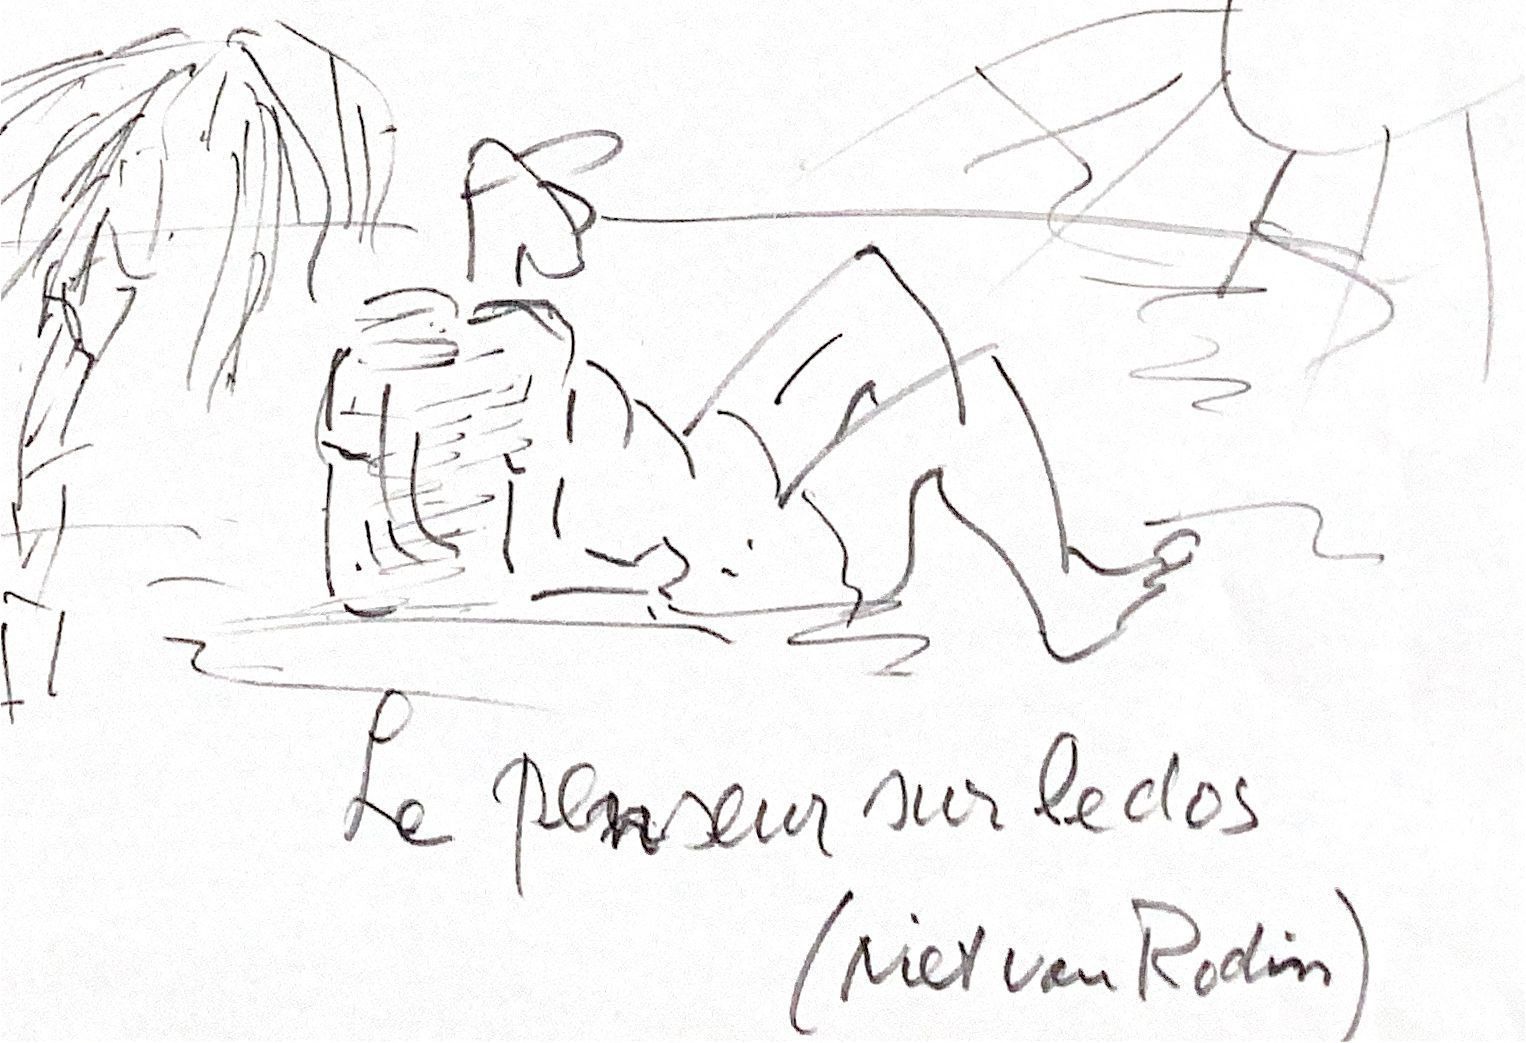 Le penseur sur le dos
(niet van Rodin)